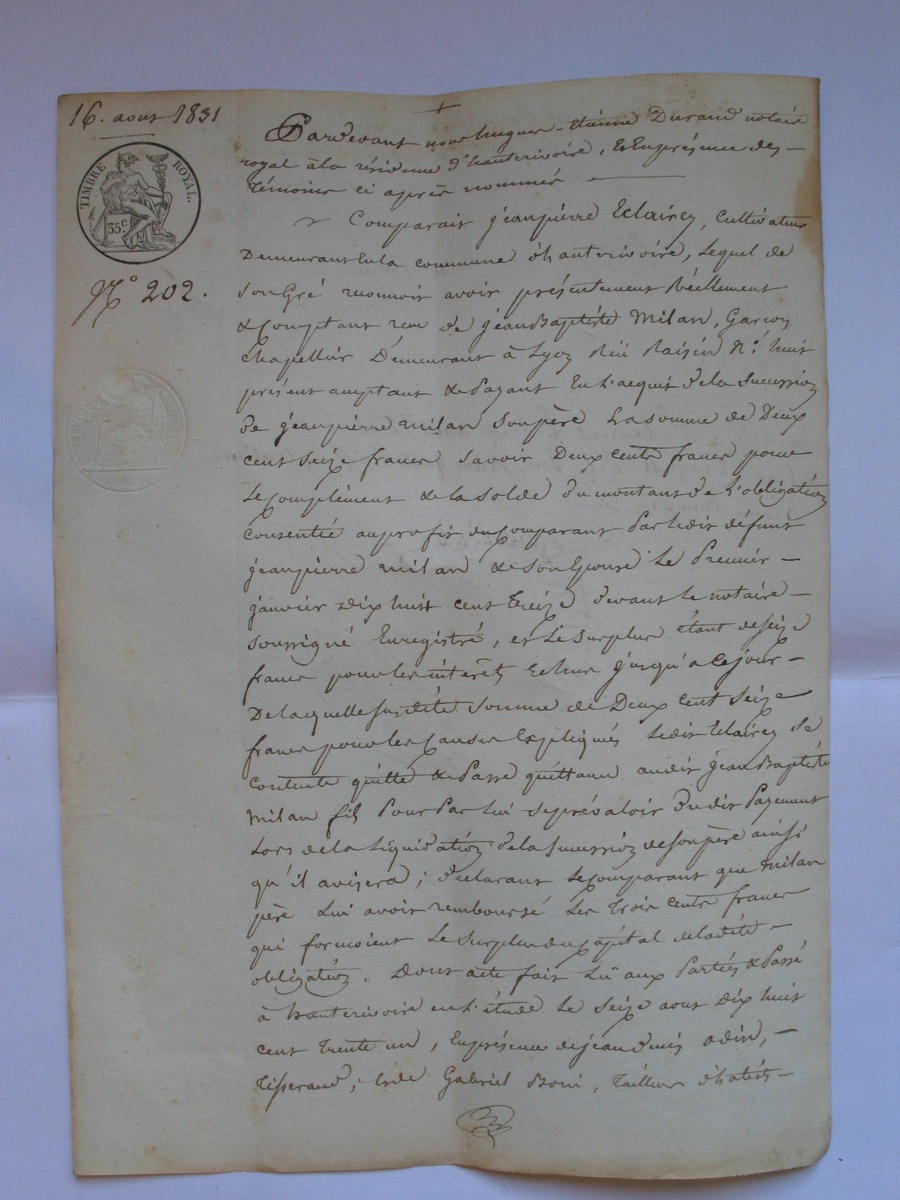 16. aout 1831
TIMBRE ROYAL.
35 C
N.° 202.
Pardevant nous hugues-étienne Durand notaire
royal à la résidence d'hauterivoire, et En présence des
témoins ci après nommés
Comparait jeanpierre Eclairey, Cultivateur
Demeurant En la commune d'hauterivoire, Lequel de
son Gré reconnoit avoir présentement Réellement
& Comptant reçu de jeanBaptiste Milan, Garcon
Chapellier Demeurant à Lyon Rüe Raisin N.° huit
présent acceptant & Payant En L'acquit de la Succession
de jeanpierre milan Son père La somme de Deux
cent Seize francs Savoir Deux cents francs pour
Le Complément & la solde du montant de L'obligation
Consentie au profit du Comparant Par Ledit défunt
jeanpierre milan & Son Epouse Le Premier
janvier Dix huit cent treize devant Le notaire
soussigné Enregistré, et Le Surplus étant de seize
francs pour les intérêts Echus jusqu'a ce jour
De laquelle susdite Somme de Deux Cent Seize
francs pour les Causes Expliqués Ledit Eclairey Se
Contente quitte & Passe quittance audit jean Baptiste
Milan fils Pour Par Lui se prévaloir du dit Payement
Lors de la Liquidation de la Succession de son père ainsi
qu'il avisera; déclarant Le Comparant que Milan
père Lui avoit remboursé Les trois cents francs
qui formoient Le Surplus du Capital de ladite
obligation. Dont acte fait Lu aux Parties & Passé
à hauterivoire en L'étude Le Seize aout Dix huit
cent trente un, En présence de jean denis odin,
Tisserand, et de Gabriel Boni, Tailleur d'habits